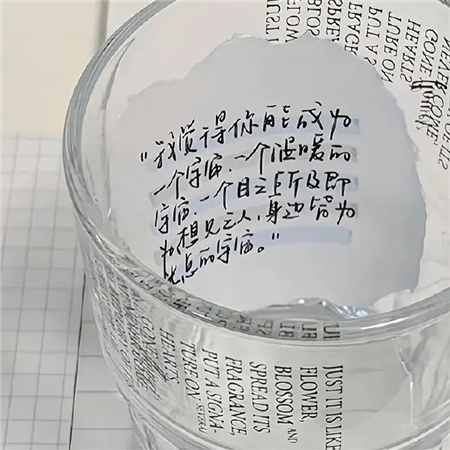 "我觉得你能成为
一个宇宙.一个温暖的
宇宙.一个目之所及即
为想见之人,身边皆为
光点的宇宙。"
JUST IT IS LIKE
FLOWER,
BLOSSOM AND
SPREAD ITS
FRAGRANCE,
PUT A SIGNA-
TURE ON SEVERAL
HEARTS
GONE
NEVER COME
GONE
HEARTS
TURE ON
PUT A S